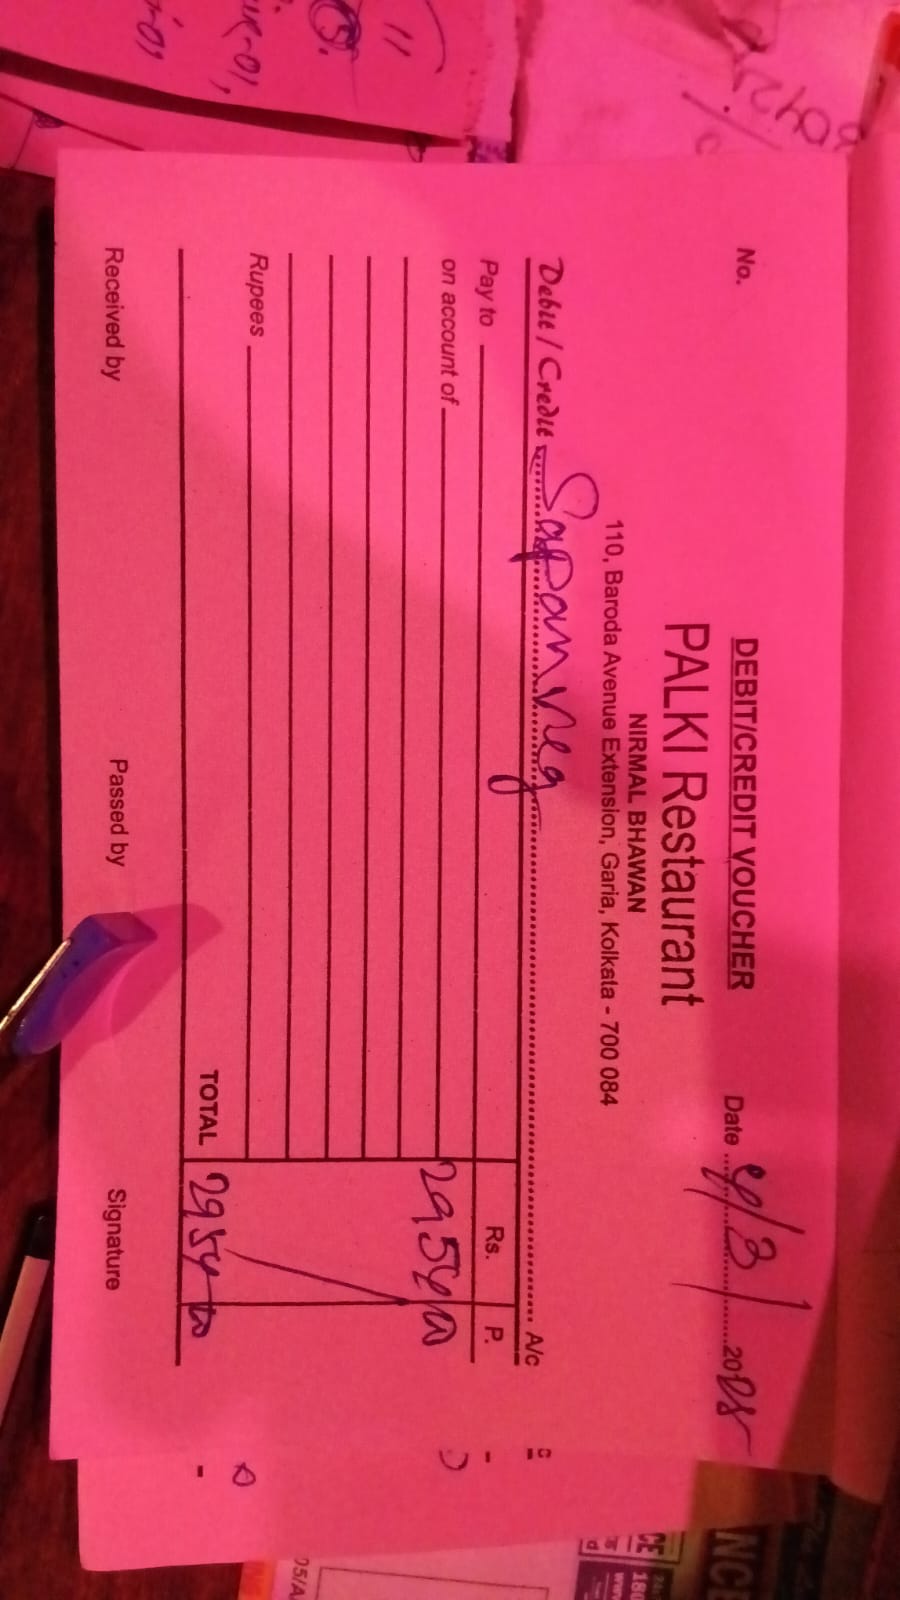 DEBIT/CREDIT VOUCHER
No.
Date 4/3/2025
PALKI Restaurant
NIRMAL BHAWAN
110, Baroda Avenue Extension, Garia, Kolkata - 700 084
Debit / Credit Sapan veg A/c
Pay to Rs. P.
on account of 2954 00
Rupees
TOTAL 2954 00
Received by Passed by Signature